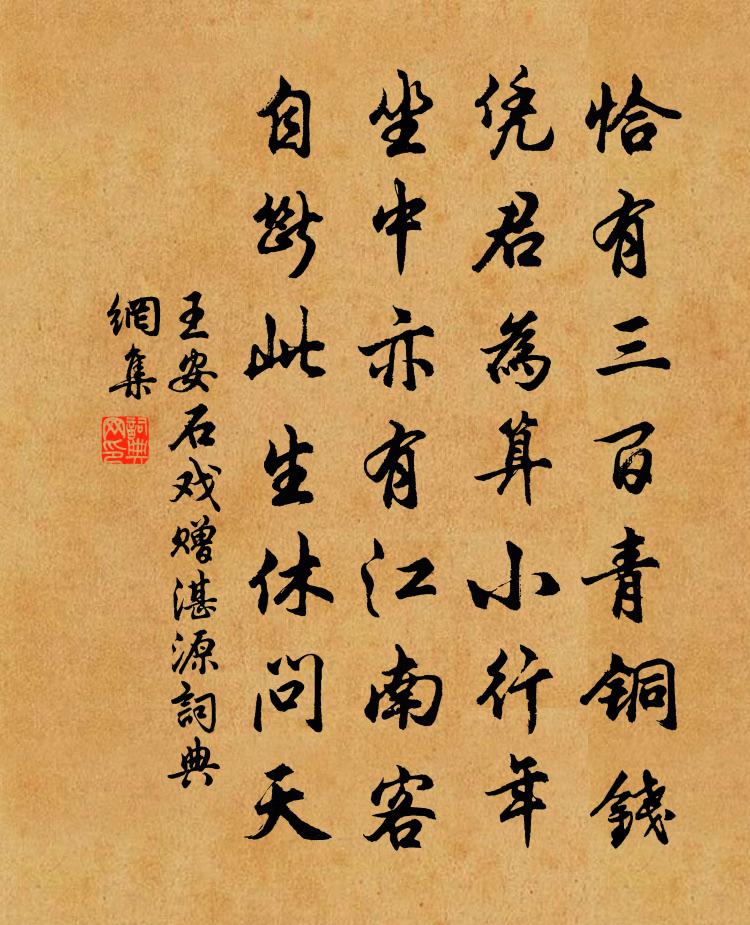 恰有三百青铜錢
凭君為算小行年
坐中亦有江南客
自断此生休问天
王安石戏赠湛源詞典
網集
詞典
网印